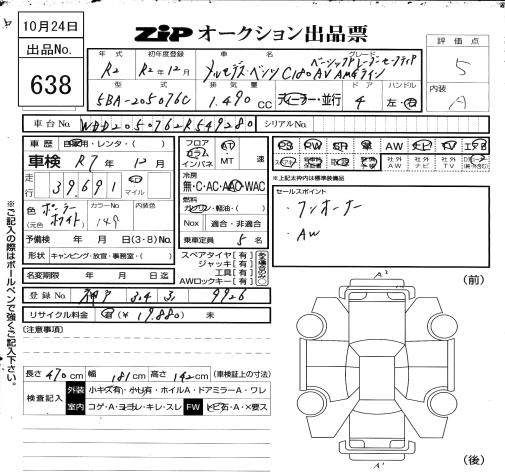 10月24日
出品No.
638
ZIP オークション出品票
年式 R2
初年度登録 R2年12月
車名 メルセデス・ベンツ C180 AV AMGライン
グレード
型式 5BA-205076C
排気量 1.490 CC
ディーラー・並行
ドア 4
ハンドル 左・右
評価点 5
内装 A
車台No. WDD2050762R549280
シリアルNo.
車歴 自家用・レンタ・( )
車検 R7年12月
走行 39,691 km マイル
色(元色) ポーラーホワイト
カラーNo. 149
内装色
予備検 年 月 日(3・8)No.
形状 キャンピング・放宣・事務室・( )
名変期限 年 月 日迄
登録No. 神戸 34 3 9926
リサイクル料金 有(¥19,880) 未
(注意事項)
フロア コラム インパネ
AT・MT 速
冷房 無・C・AC・AAC・WAC
燃料 ガソリン・軽油・( )
Nox 適合・非適合
乗車定員 5名
スペアタイヤ[有]
ジャッキ[有]
工具[有]
AWロックキー[有]
PS PW SR 革 AW TV
社外AW 社外ナビ 社外TV
※上記太枠内は標準装備品
セールスポイント
・ワンオーナー
・AW
(前)
A2
A1
(後)
長さ470cm 幅181cm 高さ142cm (車検証上の寸法)
検査記入
外装 小キズ有・小凹有・ホイルA・ドアミラーA・ワレ
室内 コゲ・A・ヨゴレ・キレ・スレ FW トビ石・A・×要ス
※ご記入の際はボールペンで強くご記入下さい。